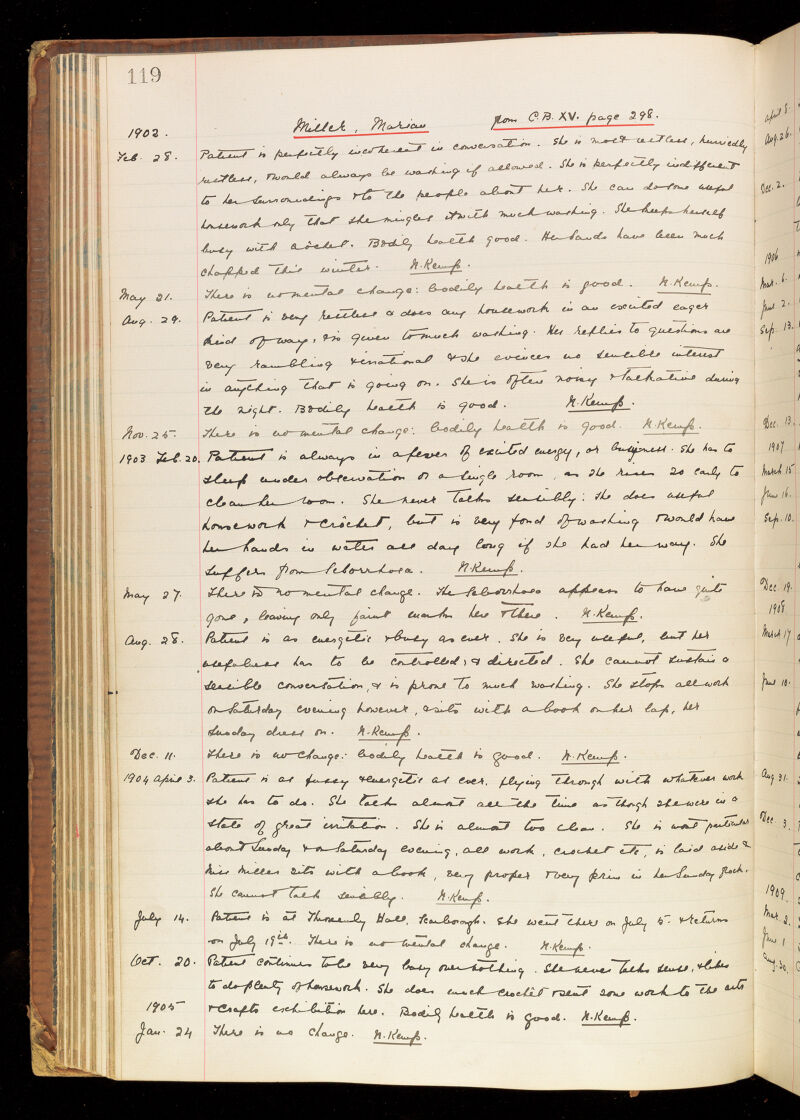 119
Miller, Marian from C.B. XV. page 298.
1902.
Feb. 28. Patient is perfectly incoherent in conversation. She is most restless, hurriedly
restless, & would always be washing if allowed. She is perfectly indifferent
to her surroundings & to the people about her. She can do some useful
housework only that she mingles it with much washing. She keeps herself
busy with crochet. Bodily health good. Her hands have been much
chapped this winter. N. Kemp.
May 21. There is no mental change: bodily health is good. N. Kemp.
Aug. 29. Patient is very restless & does any housework in an excited eager
kind of way, & is given to much washing. Her replies to questions are
very rambling & irrational & she evinces no sensible interest
in anything that is going on. She is often noisy & talkative during
the night. Bodily health is good. N. Kemp.
Nov. 25. There is no mental change: bodily health is good. N. Kemp.
1903 Feb. 20. Patient is always in a fever of excited energy, or busyness. She has to
sleep under observation or a single room, as she rises so early to
clean her room. She never talks sensibly: she does useful
housework & crochet, but is very fond of washing & would have
her hands in water all day long if she had her way. She
suffers from Seborrhoea. N. Kemp.
May 27. There is no mental change. The Seborrhoea appears to have quite
gone, leaving only faint marks here & there. N. Kemp.
Aug. 28. Patient is as energetic & busy as ever. She is very useful, but her
usefulness has to be controlled, & directed. She cannot sustain a
sensible conversation, & is prone to much washing. She stops all work
on Saturday evening however, & sits with a book on her lap, her
Sunday dress on. N. Kemp.
Dec. 11. There is no change: bodily health is good. N. Kemp.
1904 April 3. Patient is as fussy & energetic as ever, flying through with whatever work
she has to do. She talks almost all the time as though she were in a
state of great irritation. She is almost too clean. She is most particular
about Sunday & on Saturday evening, all work, crochet etc, is laid aside &
Miss Miller sits with a book, very proper & very prim in her Sunday frock.
She cannot talk sensibly. N. Kemp.
July 14. Patient is at Throxenby Hall, Scarborough. She went there on July 5. & returns
on July 19th. There is no mental change. N. Kemp.
Oct. 20. Patient continues to be very busy over nothing. She never talks sense, & likes
to do plenty of housework. She does much crochet & sent some work to the arts
1905 & crafts exhibition here. Bodily health is good. N. Kemp.
Jan. 24 There is no change. N. Kemp.
April 8.
Aug. 26.
Dec. 2.
1906
Mar. 6.
June 2.
Sep. 13.
Dec. 13.
1907
March 15
June 16.
Sep. 10.
Dec. 19.
1908
March 17
June 10.
Aug 31.
Dec 3.
1909.
Mar. 2.
June 1
Aug. 30.